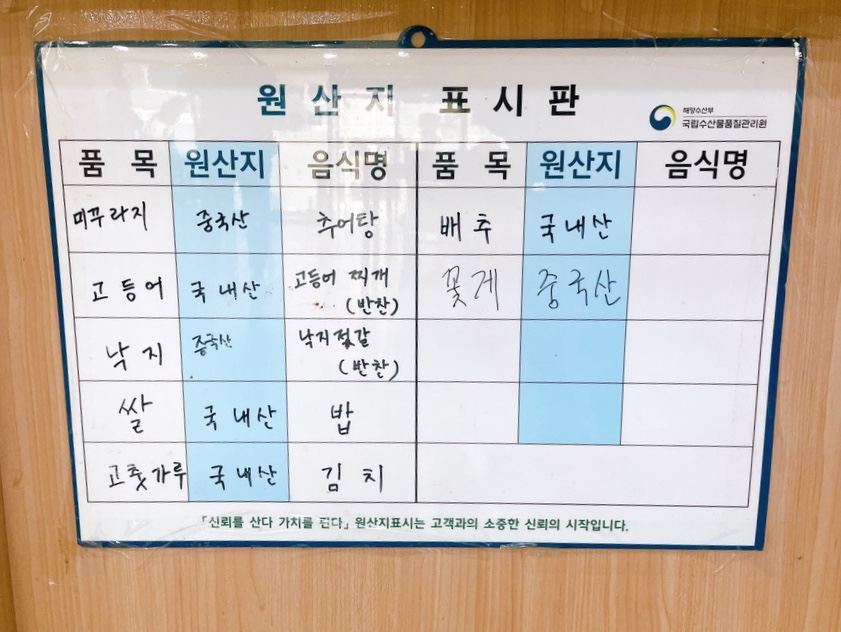 원산지 표시판
해양수산부
국립수산물품질관리원
품목 원산지 음식명 품목 원산지 음식명
미꾸라지 중국산 추어탕 배추 국내산
고등어 국내산 고등어 찌개 (반찬) 꽃게 중국산
낙지 중국산 낙지젓갈 (반찬)
쌀 국내산 밥
고춧가루 국내산 김치
「신뢰를 산다 가치를 판다」 원산지표시는 고객과의 소중한 신뢰의 시작입니다.